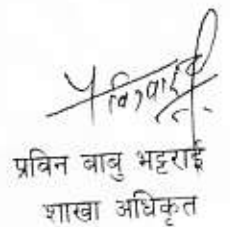 प्रबिन बाबु भट्टराई
शाखा अधिकृत